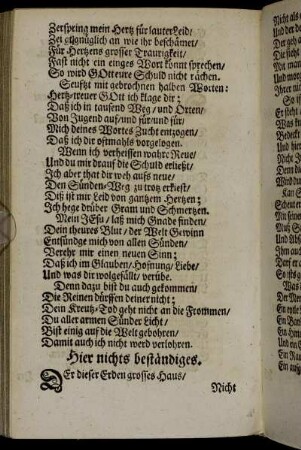 Zerspring mein Hertz für lauter Leid/
Zeig gnüglich an wie ihr beschämet/
Für Hertzens grosser Traurigkeit/
Fast nicht ein eintzges Wort konnt sprechen/
So wird GOtt eure Schuld nicht rächen.
Seufftzt mit gebrochnen halben Worten:
Hertz-treuer GOtt ich klage dir;
Daß ich in tausend Weg/ und Orten/
Von Jugend auf/ und für und für/
Mich deines Wortes Zucht entzogen/
Daß ich dir offtmahls vorgelogen.
Wenn ich verheissen wahre Reue/
Und du mir drauf die Schuld erließt/
Ich aber that dir weh aufs neue/
Den Sünden-Weg zu trotz erkiest/
Diß ist mir Leid von gantzem Hertzen;
Ich hege drüber Gram und Schmertzen.
Mein JEsu/ laß mich Gnade finden/
Dein theures Blut/ der Welt Gewinn
Entsündge mich von allen Sünden/
Verehr mir einen neuen Sinn;
Daß ich im Glauben/ Hofnung/ Liebe/
Und was dir wolgefällt/ verübe.
Denn dazu bist du auch gekommen/
Die Reinen dürffen deiner nicht;
Dein Kreutz-Tod geht nicht an die Frommen/
Du aller armen Sünder Licht/
Bist einig auf die Welt gebohren/
Damit auch ich nicht werd verlohren.
Hier nichts beständiges.
DEr dieser Erden grosses Haus/
Nicht